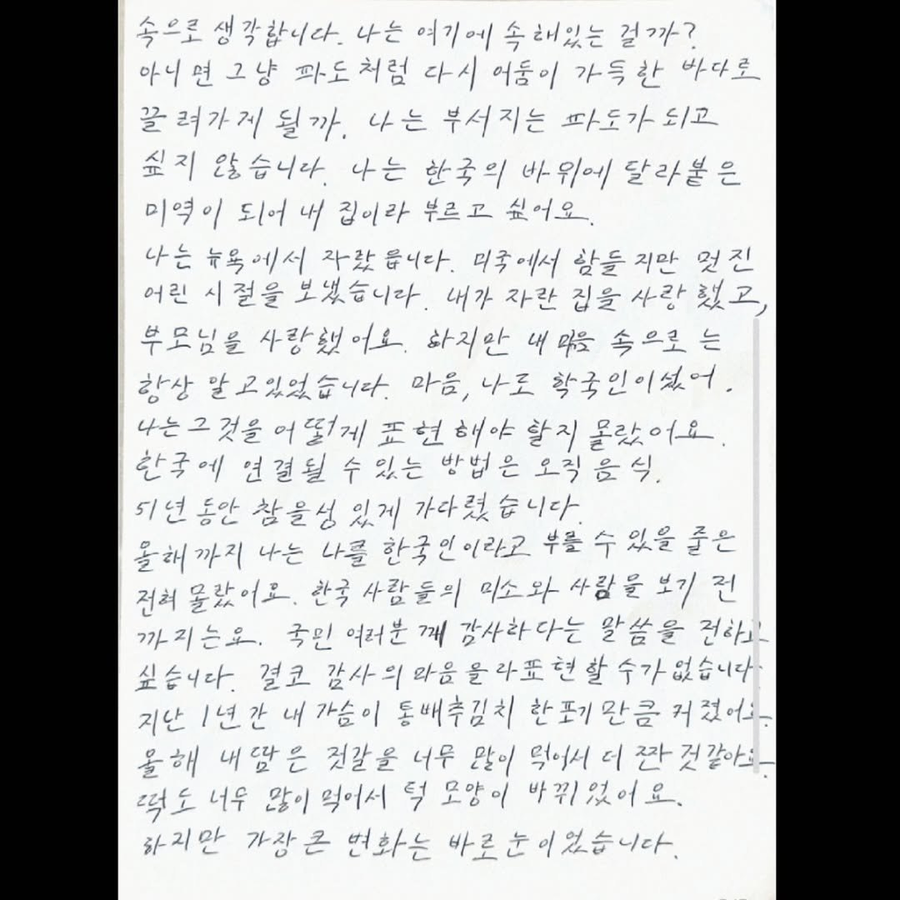 속으로 생각합니다. 나는 여기에 속해있는 걸까?
아니면 그냥 파도처럼 다시 어둠이 가득한 바다로
끌려가게 될까. 나는 부서지는 파도가 되고
싶지 않습니다. 나는 한국의 바위에 달라붙은
미역이 되어 내 집이라 부르고 싶어요.
나는 뉴욕에서 자랐읍니다. 미국에서 힘들지만 멋진
어린 시절을 보냈습니다. 내가 자란 집을 사랑했고,
부모님을 사랑했어요. 하지만 내 마음 속으로는
항상 알고있었습니다. 마음, 나도 한국인이셨어.
나는 그것을 어떻게 표현해야 할지 몰랐어요.
한국에 연결될 수 있는 방법은 오직 음식.
51년 동안 참을성 있게 기다렸습니다.
올해까지 나는 나를 한국인이라고 부를 수 있을 줄은
전혀 몰랐어요. 한국 사람들의 미소와 사람을 보기 전
까지는요. 국민 여러분께 감사하다는 말씀을 전하고
싶습니다. 결코 감사의 마음을 다 표현할 수가 없습니다.
지난 1년간 내 가슴이 통배추김치 한포기만큼 커졌어요.
올해 내 땀은 젓갈을 너무 많이 먹어서 더 짠 것같아요.
떡도 너무 많이 먹어서 턱 모양이 바뀌었어요.
하지만 가장 큰 변화는 바로 눈이었습니다.